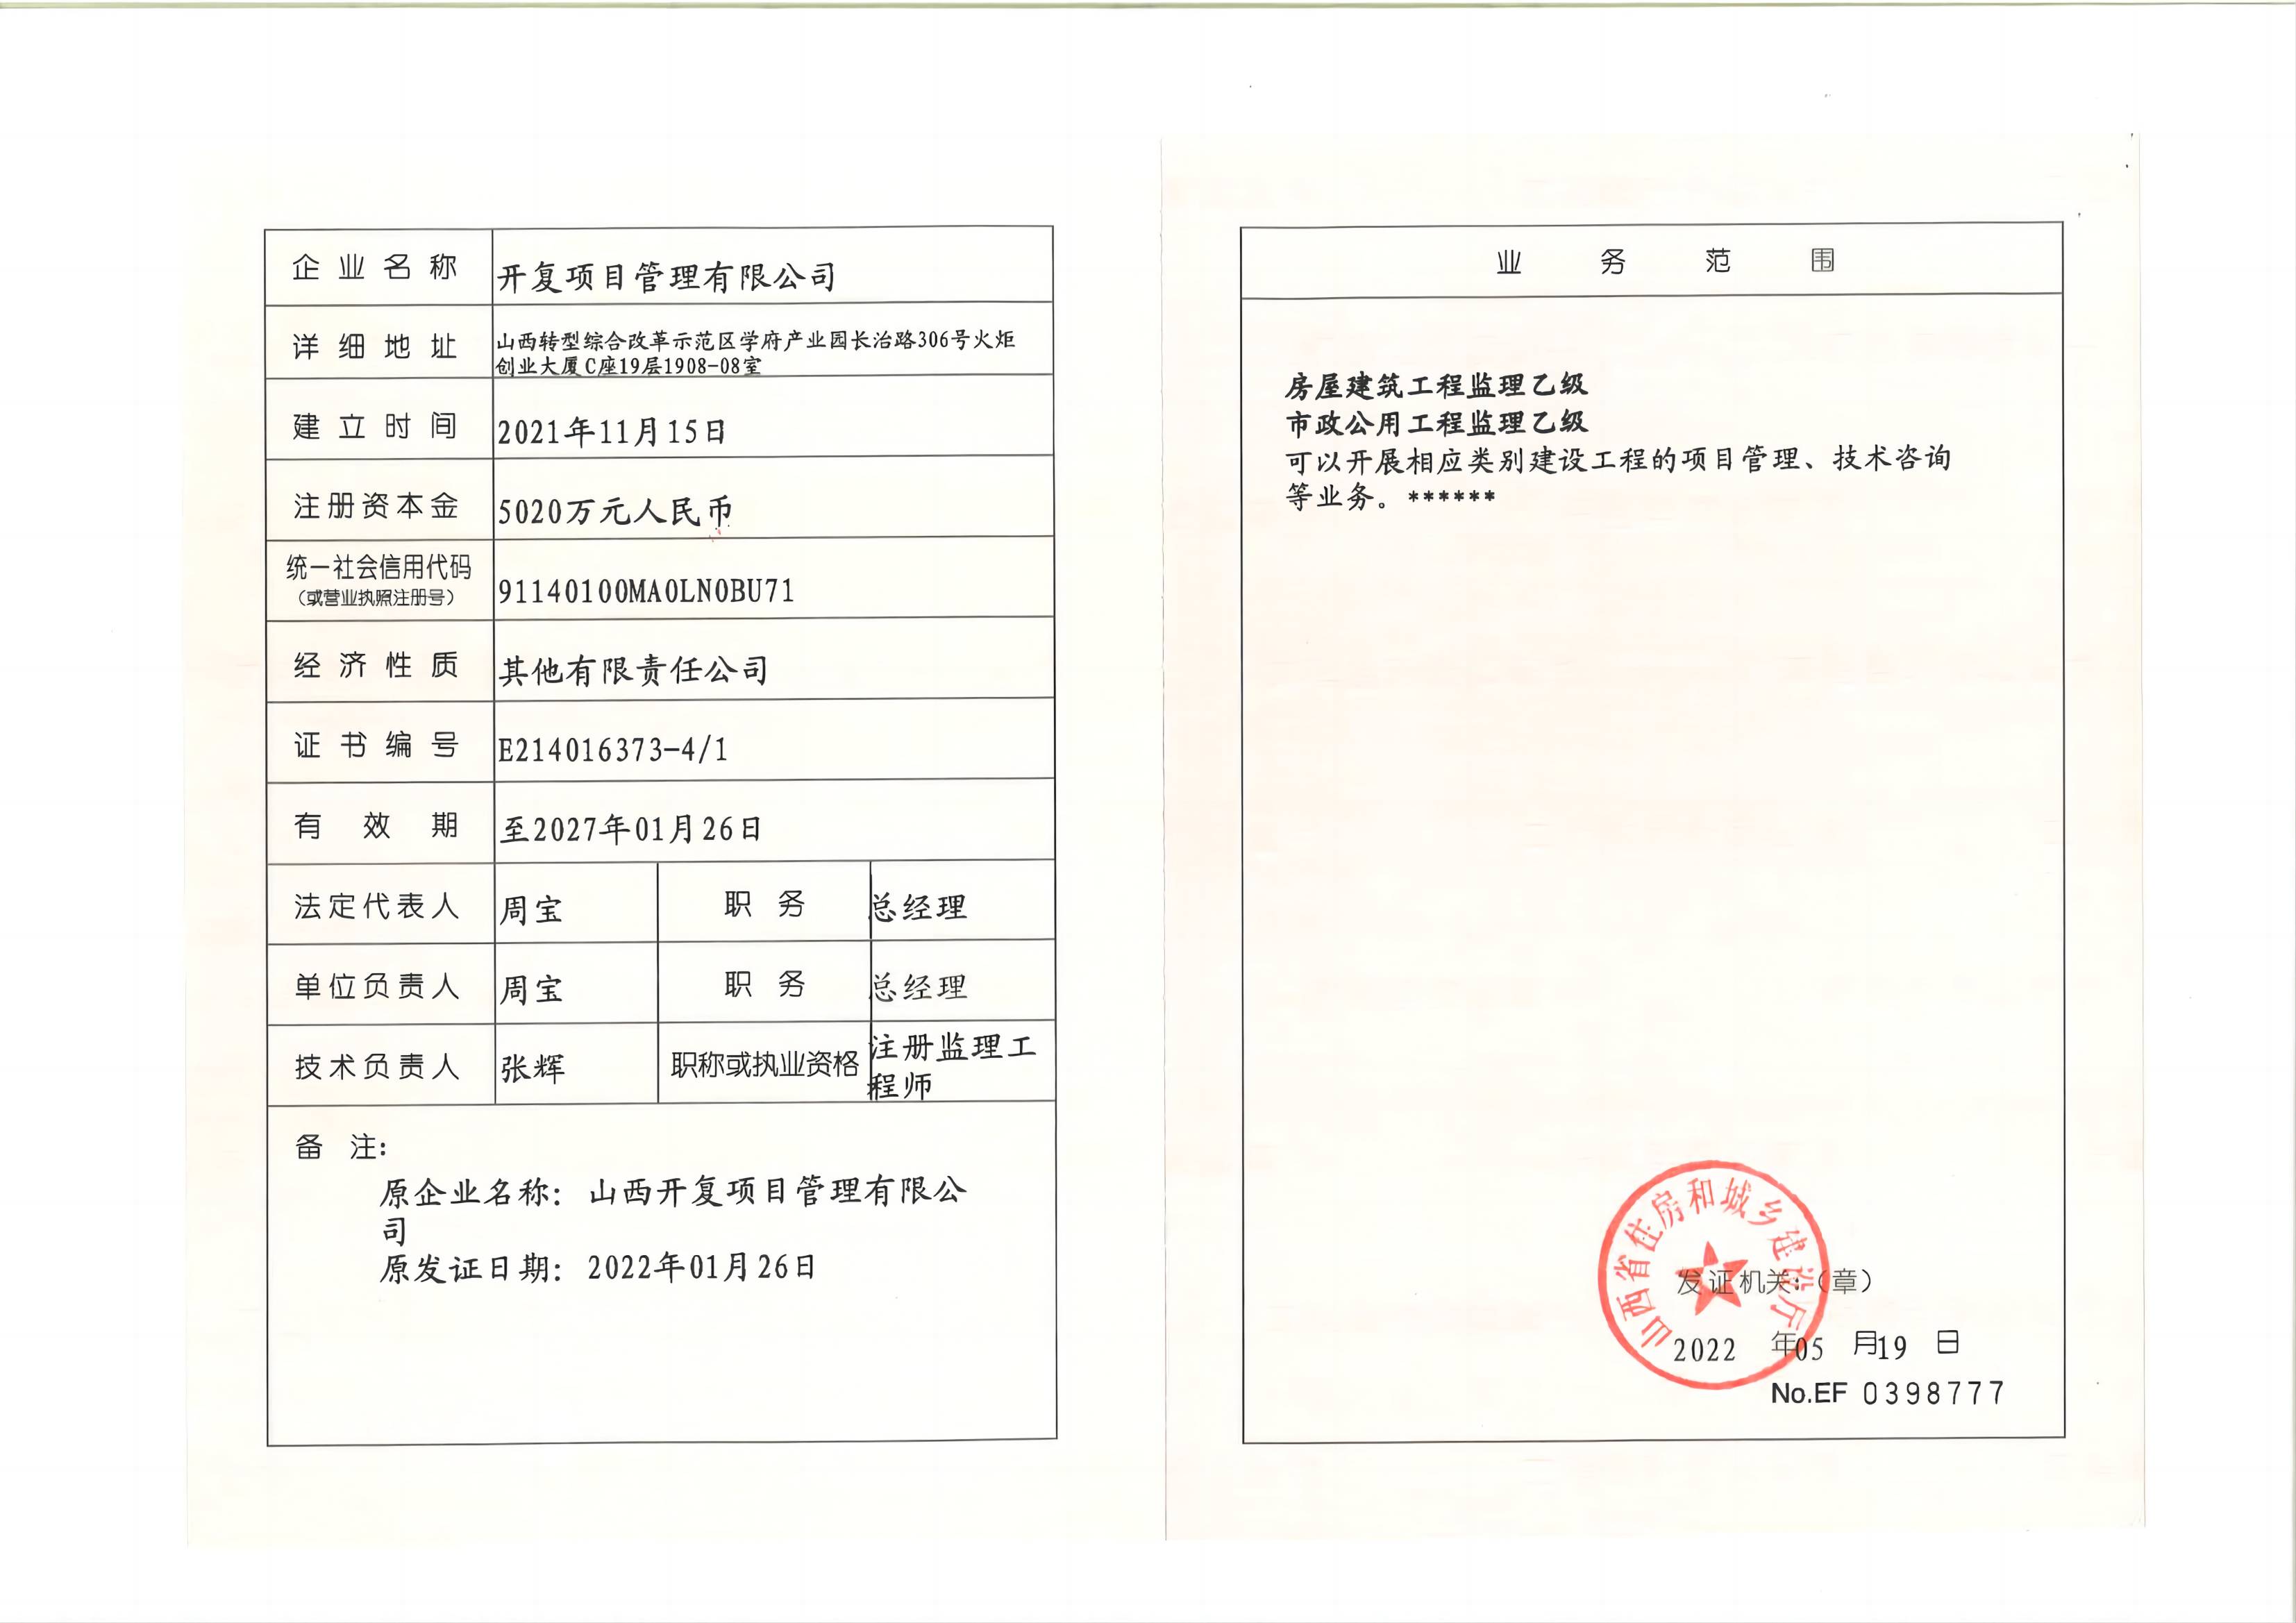 企业名称 开复项目管理有限公司
详细地址 山西转型综合改革示范区学府产业园长治路306号火炬
创业大厦C座19层1908-08室
建立时间 2021年11月15日
注册资本金 5020万元人民币
统一社会信用代码
（或营业执照注册号） 91140100MA0LN0BU71
经济性质 其他有限责任公司
证书编号 E214016373-4/1
有效期 至2027年01月26日
法定代表人 周宝 职务 总经理
单位负责人 周宝 职务 总经理
技术负责人 张辉 职称或执业资格 注册监理工
程师
备注：
原企业名称：山西开复项目管理有限公
司
原发证日期：2022年01月26日
业务范围
房屋建筑工程监理乙级
市政公用工程监理乙级
可以开展相应类别建设工程的项目管理、技术咨询
等业务。******
山西省住房和城乡建设厅
发证机关：（章）
2022年05月19日
No.EF 0398777